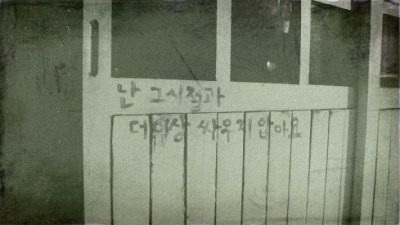 난 그시절과
더이상 싸우지 안아요